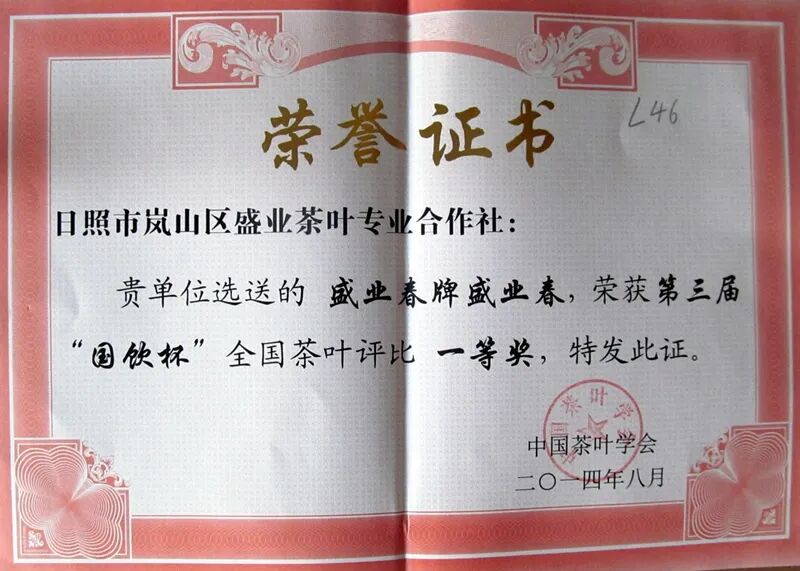 荣誉证书
L46
日照市岚山区盛业茶叶专业合作社：
贵单位选送的 盛业春牌盛业春，荣获第三届
“国饮杯”全国茶叶评比 一等奖，特发此证。
中国茶叶学会
中国茶叶学会
二〇一四年八月